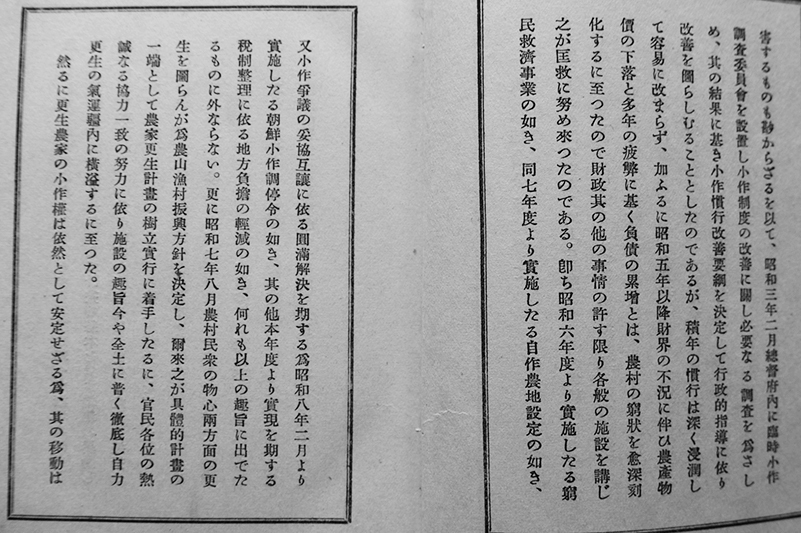 害するものも尠からざるを以て、昭和三年二月總督府内に臨時小作
調査委員會を設置し小作制度の改善に關し必要なる調査を爲さし
め、其の結果に基き小作慣行改善要綱を決定して行政的指導に依り
改善を圖らしむることとしたのであるが、積年の慣行は深く浸潤し
て容易に改まらず、加ふるに昭和五年以降財界の不況に伴ひ農產物
價の下落と多年の疲弊に基く負債の累增とは、農村の窮狀を愈深刻
化するに至つたので財政其の他の事情の許す限り各般の施設を講じ
之が匡救に努め來つたのである。卽ち昭和六年度より實施したる窮
民救濟事業の如き、同七年度より實施したる自作農地設定の如き、
又小作爭議の妥協互讓に依る圓滿解決を期する爲昭和八年二月より
實施したる朝鮮小作調停令の如き、其の他本年度より實現を期する
稅制整理に依る地方負擔の輕減の如き、何れも以上の趣旨に出でた
るものに外ならない。更に昭和七年八月農村民衆の物心兩方面の更
生を圖らんが爲農山漁村振興方針を決定し、爾來之が具體的計畫の
一端として農家更生計畫の樹立實行に着手したるに、官民各位の熱
誠なる協力一致の努力に依り施設の趣旨今や全土に普く徹底し自力
更生の氣運疆內に橫溢するに至つた。
然るに更生農家の小作權は依然として安定せざる爲、其の移動は